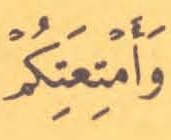 وَأَمْتِعَتِكُمْ